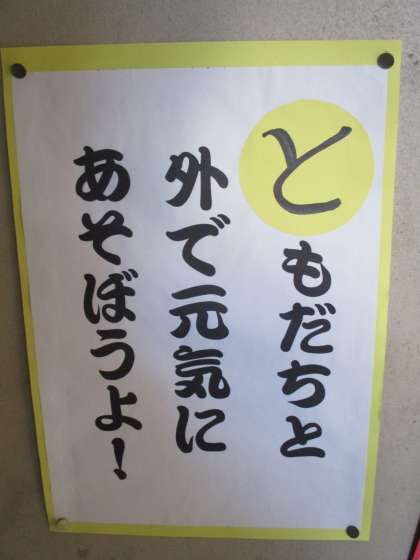 ともだちと
外で元気に
あそぼうよ!